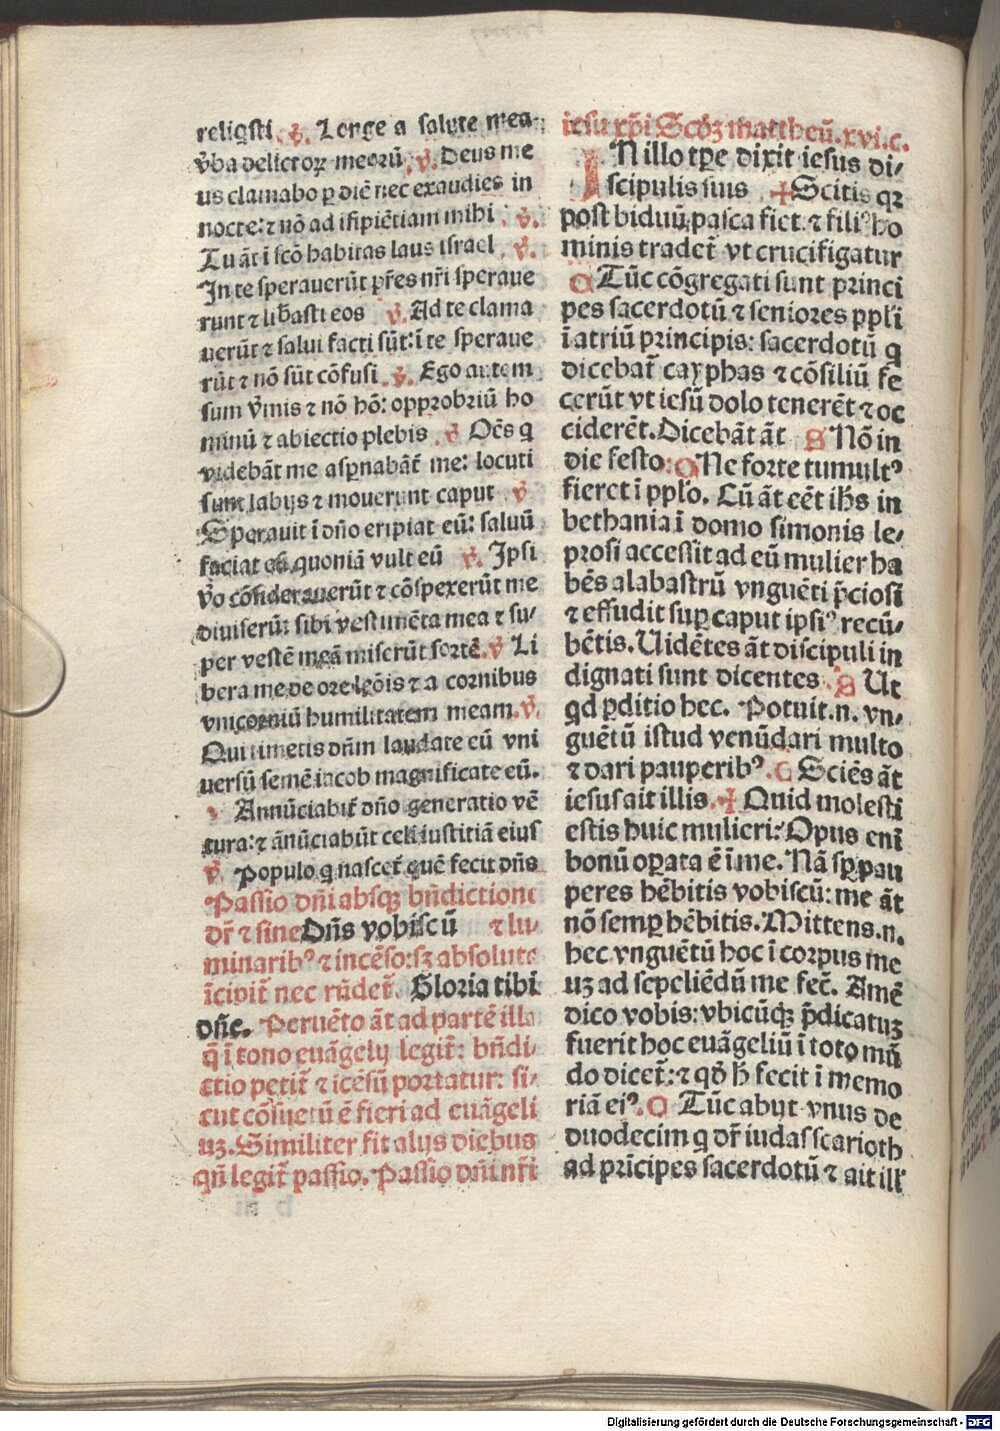 religsti .v̄. Longe a salute mea:
v̄ba delictoꝝ meorū .v̄. Deus me
us clamabo ꝑ diē nec exaudies in
nocte: ⁊ nō ad īsipiētiam mihi .v̄.
Tu āt ī scō habitas laus israel .v̄.
In te sperauerūt pr̄es nr̄i speraue
runt ⁊ lib̄asti eos v̄. Ad te clama
uerūt ⁊ salui facti sūt: ī te speraue
rūt ⁊ nō sūt cōfusi .v̄. Ego autem
sum v̄mis ⁊ nō hō: opprobriū ho
minū ⁊ abiectio plebis .v̄ Oēs q
videbāt me asꝑnabāt̄ me: locuti
sunt labijs ⁊ mouerunt caput v̄
Sperauit ī dn̄o eripiat eū: saluū
faciat eū quoniā vult eū v̄. Ipsi
v̄o cōsiderauerūt ⁊ cōspexerūt me
diuiserūt sibi vestimēta mea ⁊ su-
per vestē meā miserūt sortē .v̄ Li
bera me de ore leōis ⁊ a cornibus
vnicorniū humilitatem meam .v̄.
Qui timetis dn̄m laudate eū vni
uersū semē iacob magnificate eū.
Annūciabit̄ dn̄o generatio vē
tura: ⁊ ānūciabūt celi iustitiā eius
v̄. Populo q nascet̄ quē fecit dn̄s
Passio dn̄i absqꝫ bn̄dictione
dr̄ ⁊ sine Dn̄s vobiscū ⁊ lu-
minaribꝰ ⁊ incēso: sꝫ absolute
īcipit̄ nec rn̄det̄. Gloria tibi
dn̄e. Peruēto āt ad partē illa
q̄ ī tono euāgelij legit̄: bn̄di-
ctio petit̄ ⁊ īcēsū portatur: si-
cut cōsuetū ē fieri ad euāgeli
uꝫ. Similiter fit alijs diebus
qn̄ legit̄ passio. Passio dn̄i nr̄i
iesu xp̄i Scd̄ꝫ mattheū. xvi. c.
IN illo tp̄e dixit iesus di-
scipulis suis ✠ Scitis qꝛ
post biduū pasca fiet. ⁊ filiꝰ ho
minis tradet̄ vt crucifigatur
C Tūc cōgregati sunt princi
pes sacerdotū ⁊ seniores ppl̄i
ī atriū principis: sacerdotū q
dicebat̄ cayphas ⁊ cōsiliū fe
cerūt vt iesū dolo tenerēt ⁊ oc
ciderēt. Dicebāt āt S Nō in
die festo: C Ne forte tumultꝰ
fieret ī ppl̄o. Cū āt eēt ih̄s in
bethania ī domo simonis le-
prosi accessit ad eū mulier ha
bēs alabastrū vnguēti p̄ciosi
⁊ effudit suꝑ caput ipsiꝰ recū-
bētis. Uidētes āt discipuli in
dignati sunt dicentes .S Ut
qd ꝑditio hec. Potuit .n. vn-
guētū istud venūdari multo
⁊ dari pauperibꝰ. C Sciēs āt
iesus ait illis. ✠ Quid molesti
estis huic mulieri: Opus enī
bonū oꝑata ē ī me. Nā sꝑ pau
peres hēbitis vobiscū: me āt
nō semꝑ hēbitis. Mittens .n.
hec vnguētū hoc ī corpus me
uꝫ ad sepeliēdū me fec̄. Amē
dico vobis: vbicūqꝫ p̄dicatuꝫ
fuerit hoc euāgeliū ī toto mū
do dicet̄: ⁊ qd̄ h̄ fecit ī memo
riā eiꝰ. C Tūc abijt vnus de
duodecim q dr̄ iudas scarioth
ad prīcipes sacerdotū ⁊ ait ill̄
Digitalisierung gefördert durch die Deutsche Forschungsgemeinschaft - DFG